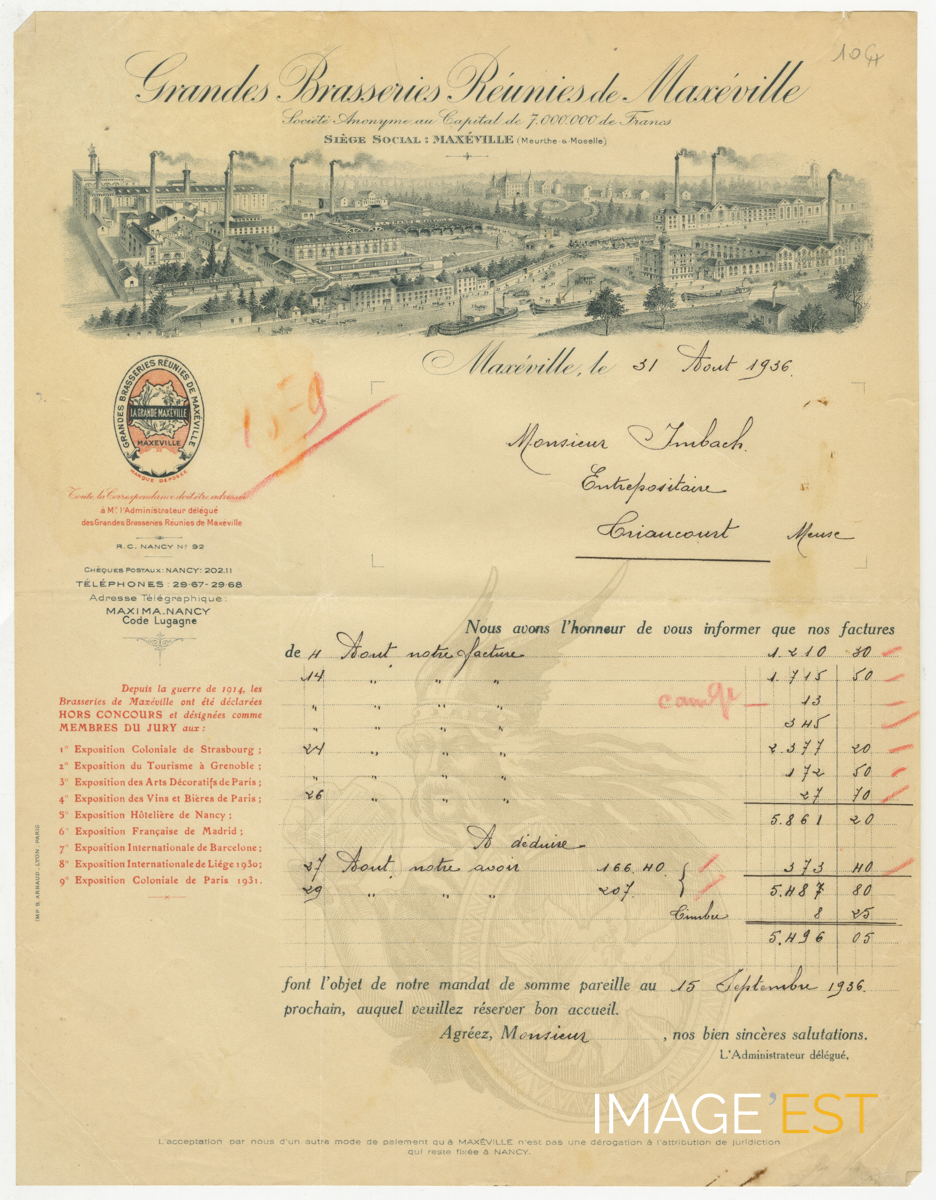 104
Grandes Brasseries Réunies de Maxéville
Société Anonyme au Capital de 7.000.000 de Francs
SIÈGE SOCIAL : MAXÉVILLE (Meurthe-&-Moselle)
Maxéville, le 31 Aout 1936.
GRANDES BRASSERIES RÉUNIES DE MAXÉVILLE
LA GRANDE MAXÉVILLE
MAXÉVILLE
MARQUE DÉPOSÉE
15-9
Monsieur Imbach.
Entrepositaire
Triaucourt Meuse
Toute la Correspondance doit être adressée
à Mr l'Administrateur délégué
des Grandes Brasseries Réunies de Maxéville
R.C. NANCY No 92
CHÈQUES POSTAUX: NANCY: 202.11
TÉLÉPHONES : 29-67-29-68
Adresse Télégraphique :
MAXIMA-NANCY
Code Lugagne
Nous avons l'honneur de vous informer que nos factures
de 4 Aout notre facture 1.210 30
14 " " " 1.715 50
" " " " camge 13
" " " " 345
24 " " " 2.377 20
" " " " 172 50
26 " " " 27 70
5.861 20
A déduire
27 Aout notre avoir 166.40 { 373 40
29 " " " 207. 5.487 80
Timbre 8 25
5.496 05
Depuis la guerre de 1914, les
Brasseries de Maxéville ont été déclarées
HORS CONCOURS et désignées comme
MEMBRES DU JURY aux :
1° Exposition Coloniale de Strasbourg ;
2° Exposition du Tourisme à Grenoble ;
3° Exposition des Arts Décoratifs de Paris ;
4° Exposition des Vins et Bières de Paris ;
5° Exposition Hôtelière de Nancy ;
6° Exposition Française de Madrid ;
7° Exposition Internationale de Barcelone ;
8° Exposition Internationale de Liége 1930 ;
9° Exposition Coloniale de Paris 1931.
IMP. B. ARNAUD, LYON-PARIS
font l'objet de notre mandat de somme pareille au 15 Septembre 1936.
prochain, auquel veuillez réserver bon accueil.
Agréez, Monsieur, nos bien sincères salutations.
L'Administrateur délégué,
IMAGE'EST
L'acceptation par nous d'un autre mode de paiement qu'à MAXÉVILLE n'est pas une dérogation à l'attribution de juridiction
qui reste fixée à NANCY.